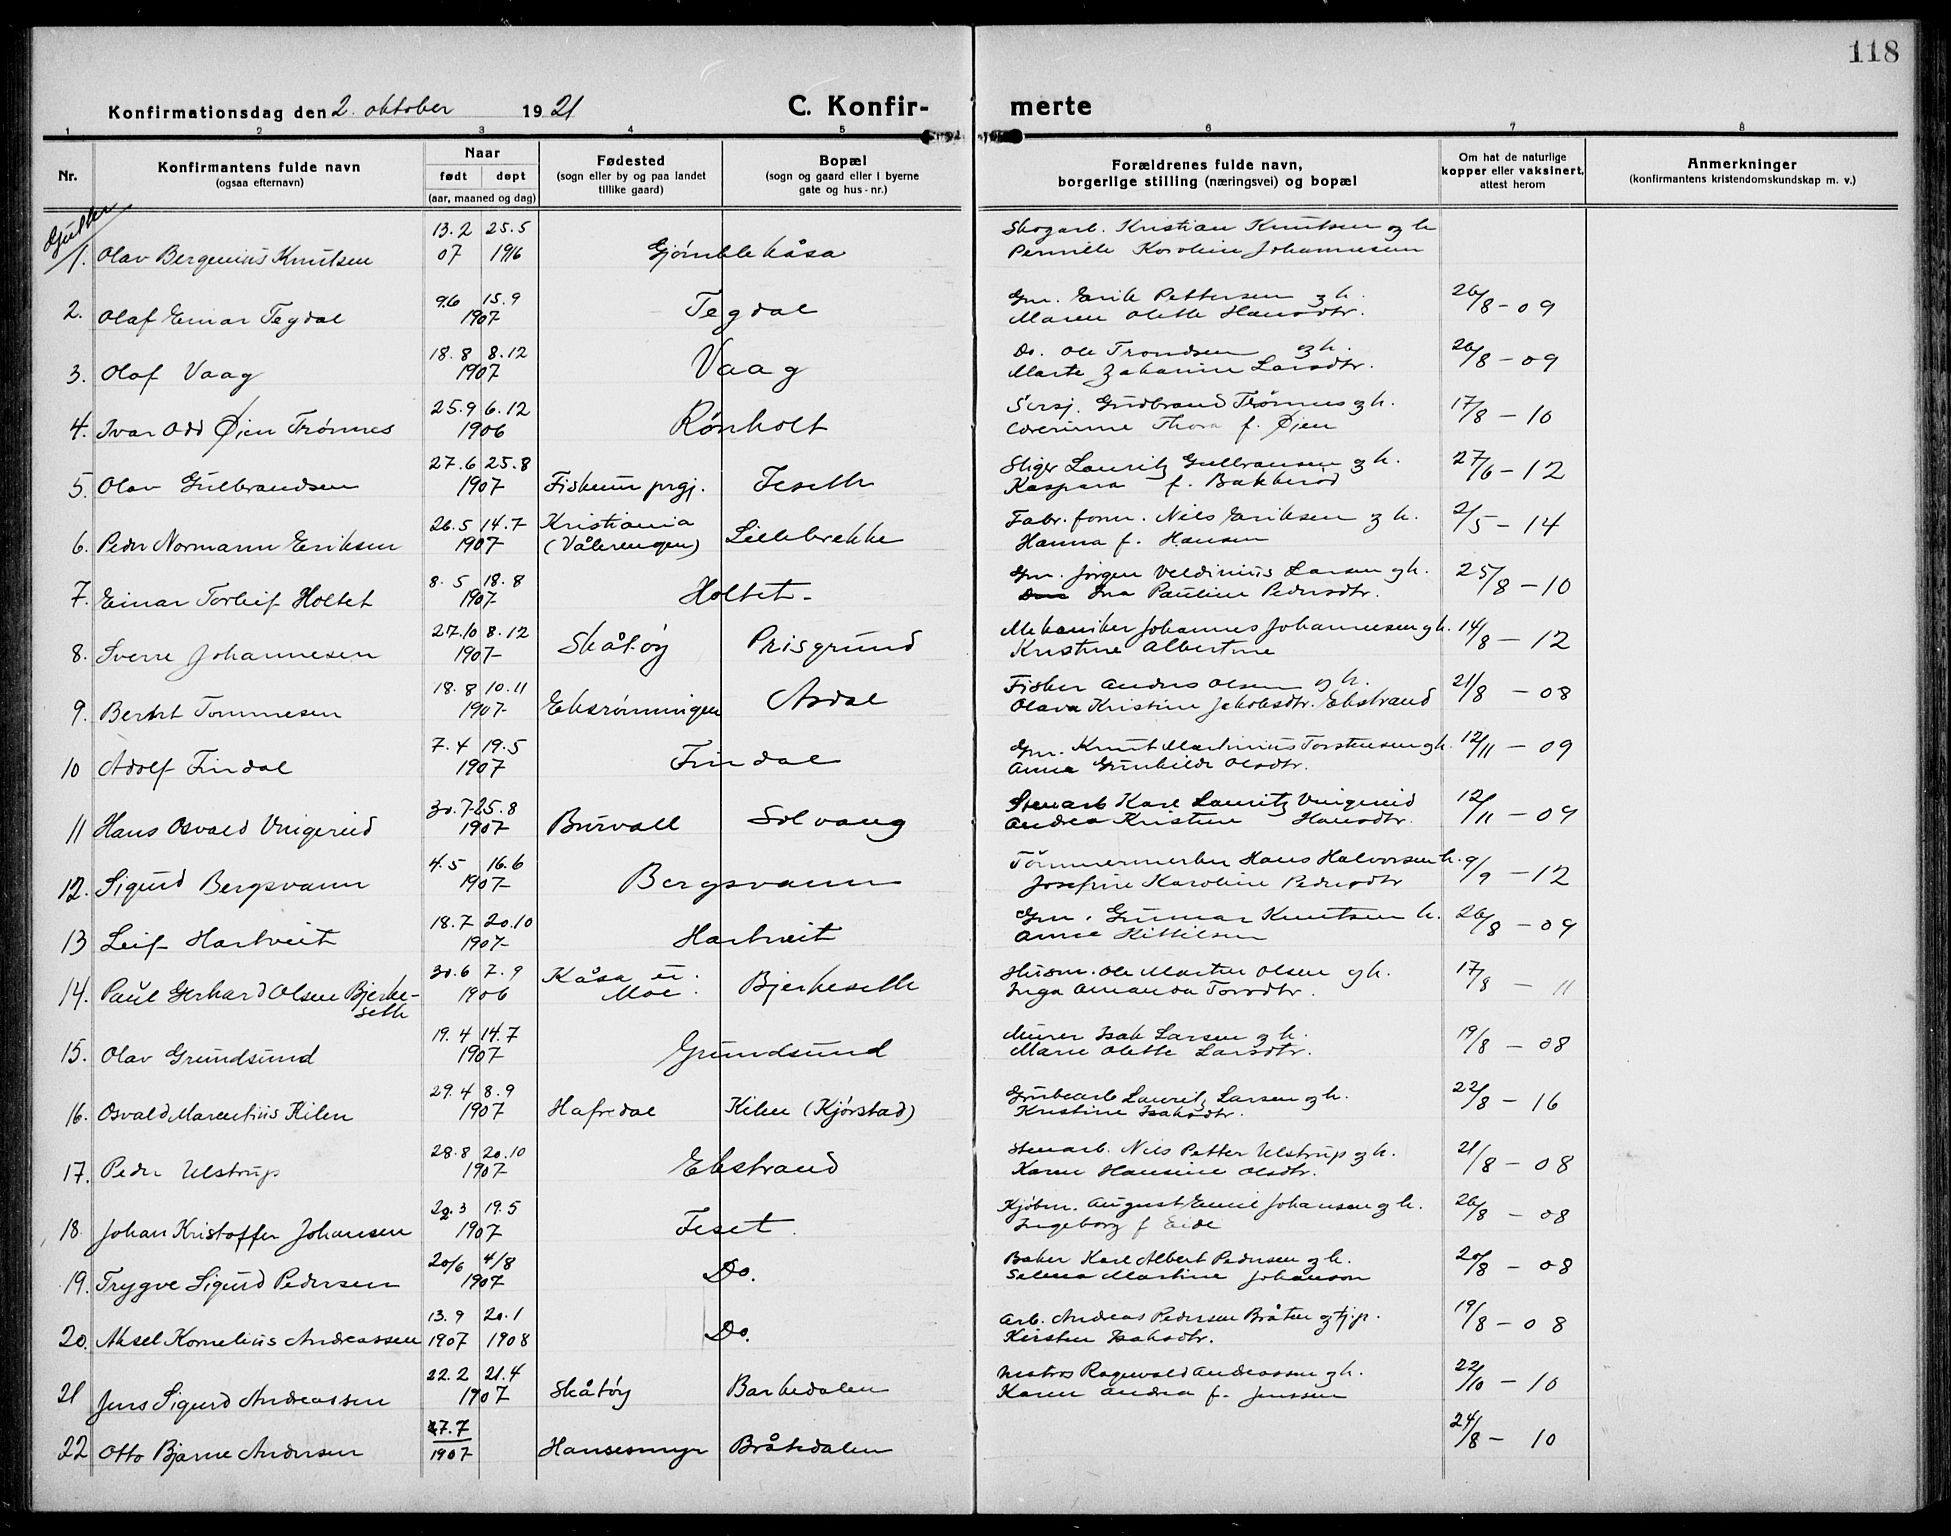 118
Konfirmationsdag den 2. oktober 1921 C. Konfir- merte
1 2 3 4 5 6 7 8
Nr.
Konfirmantens fulde navn
(ogsaa efternavn)
Naar
født døpt
(aar, maaned og dag)
Fødested
(sogn eller by og paa landet
tillike gaard)
Bopæl
(sogn og gaard eller i byerne
gate og hus-nr.)
Forældrenes fulde navn,
borgerlige stilling (næringsvei) og bopæl
Om hat de naturlige
kopper eller vaksinert,
attest herom
Anmerkninger
(konfirmantens kristendomskundskap m. v.)
Gutter
1. Olav Bergenius Knutsen 13.2 07 25.5 1916 Gjømblekåsa Skogarb. Kristian Knutsen og h
Pernille Karoline Johannesen
2. Olaf Einar Tegdal 9.6 15.9 1907 Tegdal Gm. Erik Pettersen og h. 26/8 - 09
Maren Olette Hansdtr.
3. Olaf Vaag 18.8 8.12 1907 Vaag Do. Ole Trondsen og h. 26/8 - 09
Marte Zakarine Larsdtr.
4. Ivar Odd Øien Trønnes 25.9 6.12 1906 Rønholt Sersj. Gudbrand Trønnes og h. 17/8 - 10
Thora f. Øien
5. Olav Gulbrandsen 27.6 25.8 1907 Fiskum prgj. Feseth Stiger Lauritz Gulbransen og h. 27/6 - 12
Kaspara f. Bakkerød
6. Peder Normann Eriksen 26.5 14.7 1907 Kristiania (Vålerengen) Lillebrekke Fabr. form. Nils Eriksen og h. 2/5 - 14
Hanna f. Hansen
7. Einar Torleif Holtet 8.5 18.8 1907 Holtet Gm. Jørgen Veldinius Larsen og h. 25/8 - 10
Ina Pauline Pedersdtr.
8. Sverre Johannesen 27.10 8.12 1907 Skåtøy Prisgrund Mekaniker Johannes Johannesen og h. 14/8 - 12
Kristine Albertine
9. Berket Tommesen 18.8 10.11 1907 Ekerønningen Asdal Fisker Anders Olsen og h. 21/8 - 08
Olava Kristine Jakobsdtr. Ekstrand
10 Adolf Findal 7.4 19.5 1907 Findal Gm. Knut Martinius Torstensen og h. 12/11 - 09
Anne Gunhilde Olsdtr.
11 Hans Osvald Vingereid 30.7 25.8 1907 Burvall Solvang Stenarb Karl Lauritz Vingereid 12/11 - 09
Andrea Kristine Hansdtr.
12. Sigurd Bergsvann 4.5 16.6 1907 Bergsvann Tømmermerker Hans Halvorsen h. 9/9 - 12
Josefine Karoline Pedersdtr
13 Leif Hartveit 18.7 20.10 1907 Hartveit Gm. Gunnar Knutsen h. 26/8 - 09
Anne Kittilsen
14. Paul Gerhard Olsen Bjerke-
seth 30.6 7.9 1906 Kåsa u. Moe. Bjerkeseth Husm. Ole Martin Olsen og h. 17/8 - 11
Inga Amanda Torsdtr.
15. Olav Grundsund 19.4 14.7 1907 Grundsund Murer Isak Larsen og h. 19/8 - 08
Marie Olette Larsdtr.
16. Osvald Marentius Kilen 29.4 8.9 1907 Hafredal Kilen (Kjørstad) Grubearb Lauritz Larsen og h. 22/8 - 16
Kristine Isaksdtr.
17. Peder Ulstrup 28.8 20.10 1907 Ekstrand Stenarb. Nils Petter Ulstrup og h. 21/8 - 08
Karen Hansine Olsdtr.
18. Johan Kristoffer Johansen 20.3 19.5 1907 Feset Kjøbm. August Emil Johansen og h. 26/8 - 08
Ingeborg f Eide
19. Trygve Sigurd Pedersen 20/6 4/8 1907 Do. Baker Karl Albert Pedersen og h. 20/8 - 08
Selma Martine Johanson
20. Aksel Kornelius Andreassen 13.9 1907 20.1 1908 Do. Arb. Andreas Pedersen Bråten og Kjip. 19/8 - 08
Kirsten Isaksdtr.
21 Jens Sigurd Andreassen 22.2 21.4 1907 Skåtøy Barkedalen Matros Ragnvald Andreassen og h. 22/10 - 10
Karen Andrea f. Jenssen
22 Otto Bjarne Andersen 27.7 1907 Hansesmyr Bråtedalen 24/8 - 10